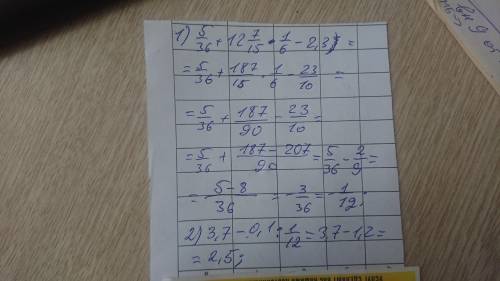 1) 5/36 + 12 7/15 • 1/6 − 2,3 =
= 5/36 + 187/15 · 1/6 − 23/10 =
= 5/36 + 187/90 − 23/10 =
= 5/36 + (187 − 207)/90 = 5/36 − 2/9 =
= (5 − 8)/36 = − 3/36 = − 1/12;
2) 3,7 − 0,1 : 1/12 = 3,7 − 1,2 =
= 2,5;